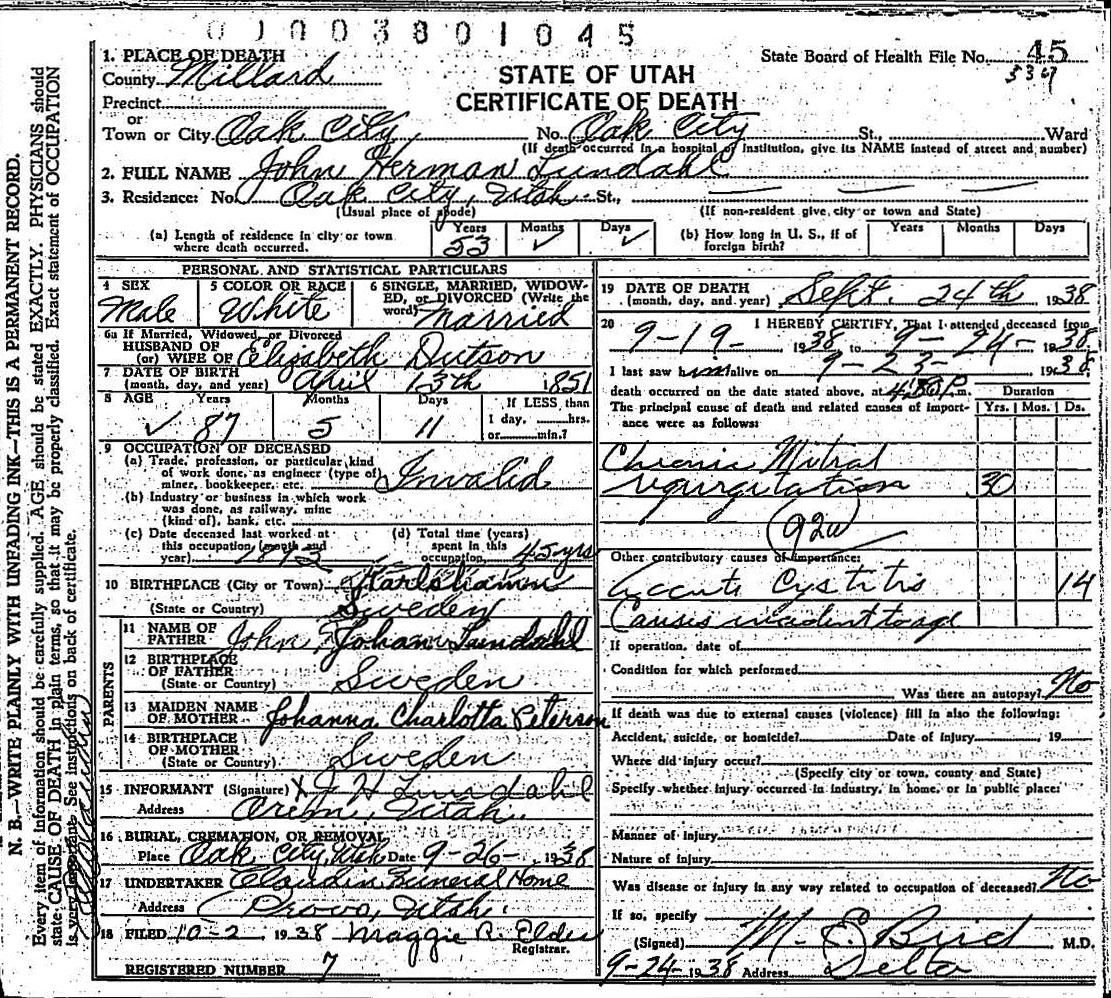 0 1 0 0 3 8 0 1 0 4 5
State Board of Health File No. 45
STATE OF UTAH
CERTIFICATE OF DEATH
1. PLACE OF DEATH
County Millard
Precinct
or
Town or City Oak City, No. Oak City St., Ward
(If death occurred in a hospital or institution, give its NAME instead of street and number)
2. FULL NAME John Herman Lundahl
3. Residence: No. Oak City, Utah St.,
(Usual place of abode) (If non-resident give, city or town and State)
(a) Length of residence in city or town where death occurred. Years 53 Months ✓ Days ✓
(b) How long in U. S., if of foreign birth? Years Months Days
PERSONAL AND STATISTICAL PARTICULARS
4 SEX Male
5 COLOR OR RACE White
6 SINGLE, MARRIED, WIDOWED, or DIVORCED (Write the word) Married
6a If Married, Widowed, or Divorced
HUSBAND OF
(or) WIFE OF Elizabeth Dutson
7 DATE OF BIRTH
(month, day, and year) April 13th 1851
8 AGE Years Months Days If LESS than
✓ 87 5 11 1 day, hrs.
or min.?
9 OCCUPATION OF DECEASED
(a) Trade, profession, or particular kind
of work done, as engineer (type of)
miner, bookkeeper, etc. Invalid
(b) Industry or business in which work
was done, as railway, mine
(kind of), bank, etc.
(c) Date deceased last worked at
this occupation (month and
year)
(d) Total time (years)
spent in this
occupation 45 yrs
10 BIRTHPLACE (City or Town) Karlshamn
(State or Country) Sweden
PARENTS
11 NAME OF
FATHER John Johan Lundahl
12 BIRTHPLACE
OF FATHER
(State or Country) Sweden
13 MAIDEN NAME
OF MOTHER Johanna Charlotta Peterson
14 BIRTHPLACE
OF MOTHER
(State or Country) Sweden
15 INFORMANT (Signature) X J H Lundahl
Address Orem, Utah.
16 BURIAL, CREMATION, OR REMOVAL
Place Oak City, Utah Date 9-26-, 1938
17 UNDERTAKER Claudin Funeral Home
Address Provo, Utah.
18 FILED 10-2 1938 Maggie R. Elder
Registrar.
REGISTERED NUMBER 7
19 DATE OF DEATH
(month, day, and year) Sept. 24th 1938
20 I HEREBY CERTIFY, That I attended deceased from
9-19- 1938 to 9-24- 1938
I last saw him alive on 9-23- 1938
death occurred on the date stated above, at 4:30 P. m.
The principal cause of death and related causes of importance were as follows:
Duration
Yrs. Mos. Ds.
Chronic Mitral
regurgitation 30
Other contributory causes of importance:
Accute Cystitis 14
Causes incident to age
If operation, date of
Condition for which performed
Was there an autopsy? No
If death was due to external causes (violence) fill in also the following:
Accident, suicide, or homicide? Date of injury , 19
Where did injury occur?
(Specify city or town, county and State)
Specify whether injury occurred in industry, in home, or in public place:
Manner of injury
Nature of injury
Was disease or injury in any way related to occupation of deceased? No
If so, specify
(Signed) M. E. Bird M.D.
9-24-1938 Address Delta
N. B.—WRITE PLAINLY WITH UNFADING INK—THIS IS A PERMANENT RECORD.
Every item of information should be carefully supplied. AGE should be stated EXACTLY. PHYSICIANS should
state CAUSE OF DEATH in plain terms, so that it may be properly classified. Exact statement of OCCUPATION
is very important. See instructions on back of certificate.